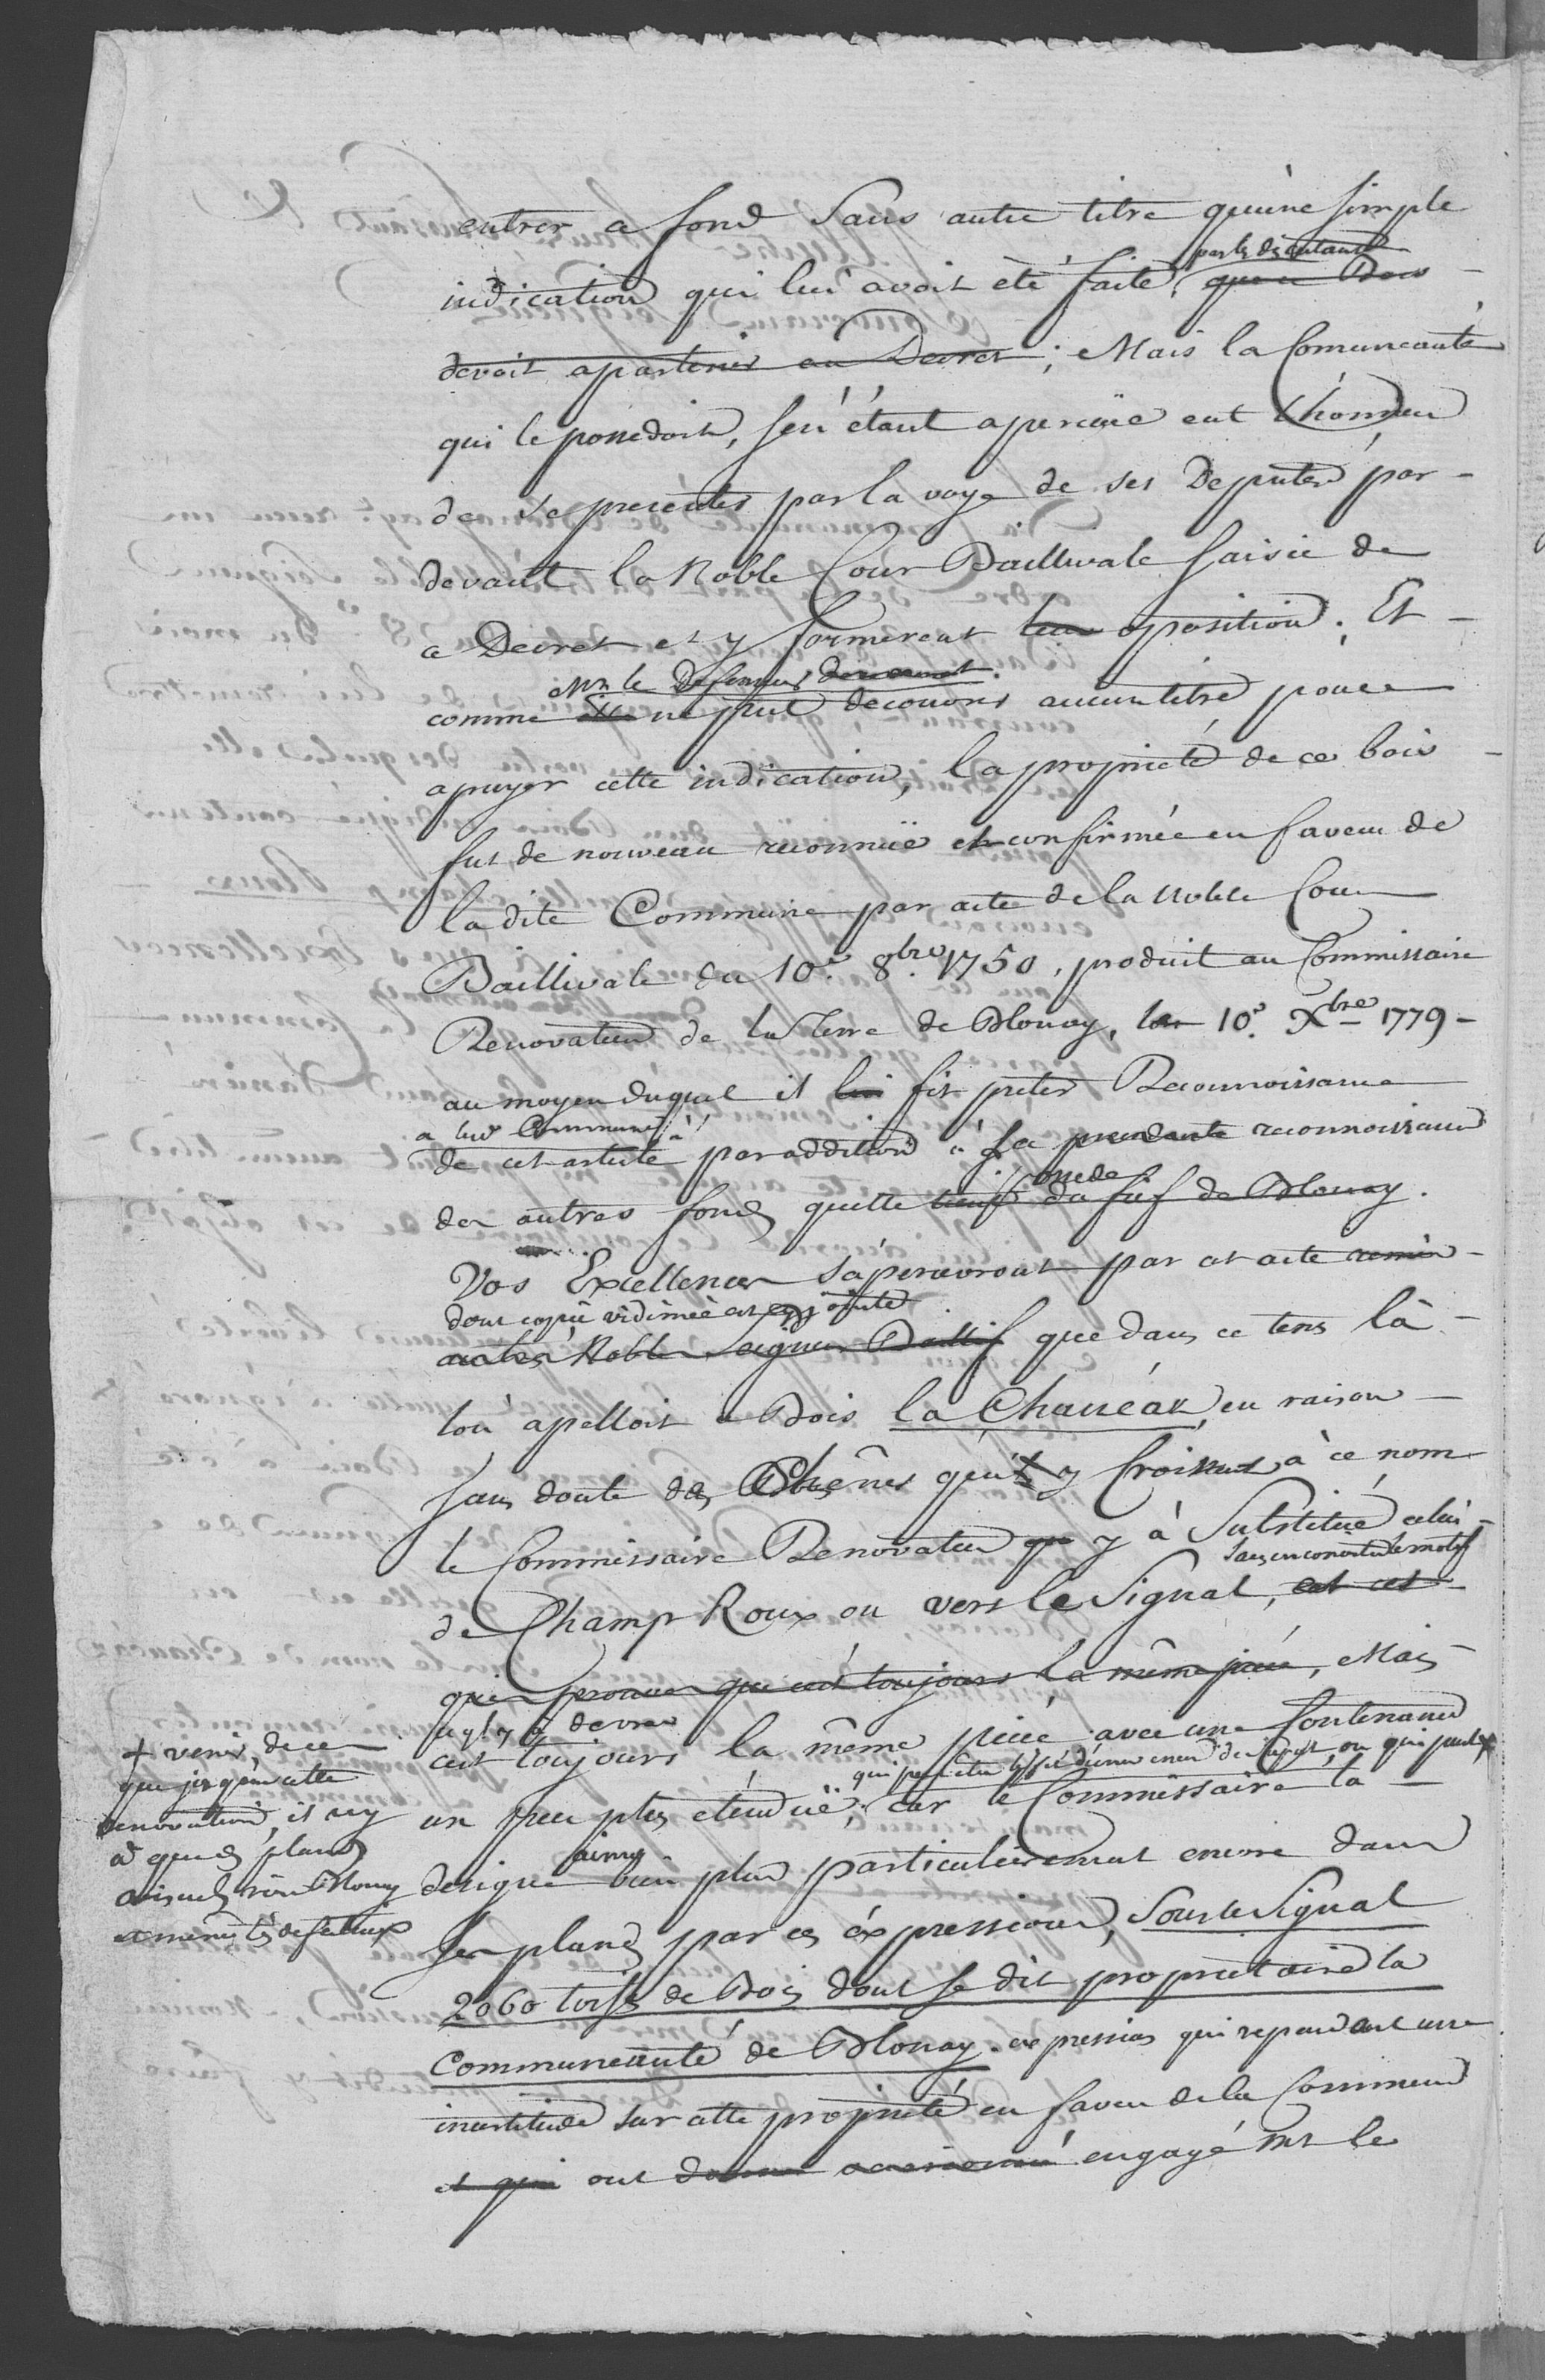 entrer a fond sans autre titre qu'une simple
par les discutants
indication qui lui avoit été faite, que ce Bois
devoit apartenir au Decret; Mais la Comuneauté
qui le possedoit, s'en étant aperçüe eut l'honneur
de se presenter par la voye de ses Deputés par-
devant la Noble Cour Baillivale saisie de
ce Decret et y formerent leur oposition. Et
Mr le Defenseur
comme ne put decouvrir aucun titre pour
apuyer cette indication, la proprieté de ce bois
fut de nouveau reconnuë et confirmée en faveur de
la dite Commune par acte de la Noble Cour
Baillivale du 10e. 8bre 1750, produit au Commissaire
Renovateur de la Terre de Blonay, le 10e. Xbre 1779
au moyen duquel il lui fit preter Reconnoissance
a lad Commune
de cet article par addition à sa precedante reconnoissance
des autres fonds quelle tient du fief de Blonay.
Vos Excellences s'apercevront par cet acte
dont copie vidimée est cy jointe
Noble Seigneur Baillif que dans ce tems là
lon apelloit ce Bois la Chaneáz, en raison
sans doute des Chênes qui y Croissent, à ce nom
le Commissaire Renovateur y à Substitué celui
sans en connoitre le motif
de Champ Roux ou vers le Signal, est cet
que c'est toujours la même piece, Mais
cest toujours la même piece avec une Contenance
qui peut être l'effet d'une erreur de , ou qui peut +
un peu plus étenduë, car le Commissaire la
ainsy
designé bien plus particulierement encore dans
ses plans par ces éxpressions, Sous le Signal
2060 toises de Bois dont se dit proprietaire la
Communeauté de Blonay. expressions qui repandent une
incertitude sur cette proprieté en faveur de la Commune
et qui ont donné occasionné engagé Mr le
+ venir, de ce
que jusqu'en cette
renovation, il n'y
a que des plans
visuels rière Blonay
et même très defectueux